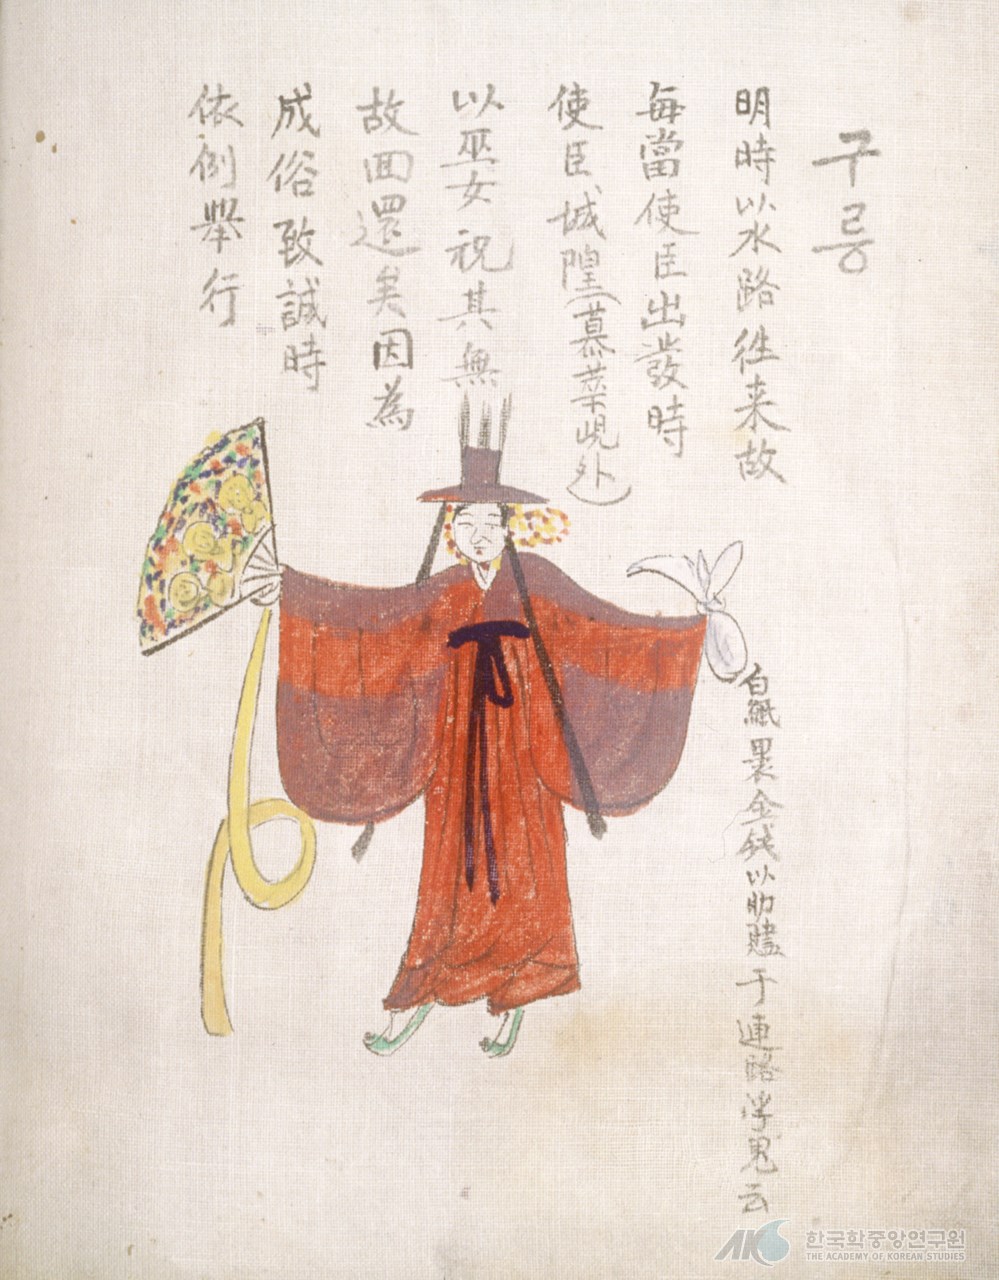 구릉
明時以水路徃来故
每當使臣出發時
使臣城隍(慕華峴外)
以巫女祝其無
故回還矣因為
成俗致誠時
依例舉行
白紙裹金銭以助贐于連路浮鬼云
한국학중앙연구원
THE ACADEMY OF KOREAN STUDIES